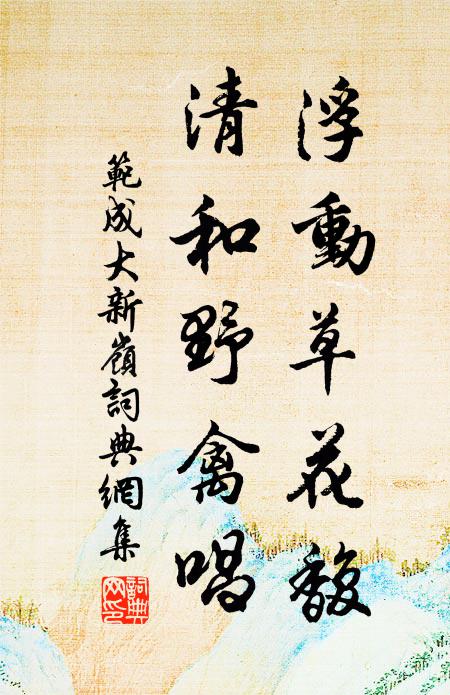 浮動草花馥
清和野禽唱
範成大新嶺詞典網集
詞典
網印